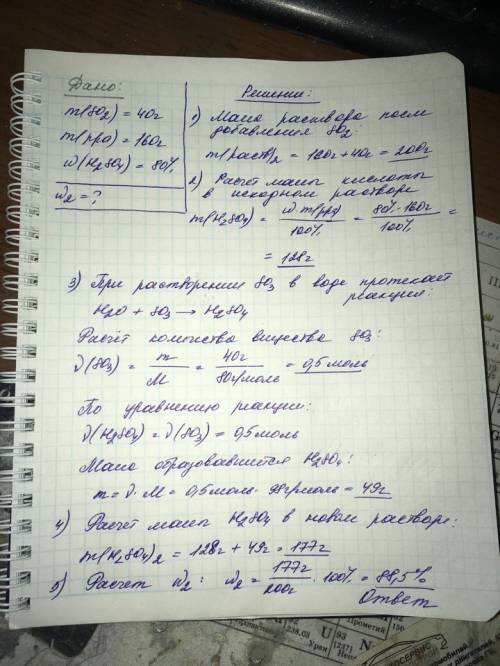 Дано:
m(SO₂) = 40г
m(рра) = 160г
ω(H₂SO₄) = 80%
ω₂ = ?
Решение:
1) Масса раствора после
добавления SO₂:
m(раств)₂ = 160г + 40г = 200г
2) Расчёт массы кислоты
в исходном растворе
m(H₂SO₄) = ω·m(рра) / 100% = 80%·160г / 100% =
= 128г
3) При растворении SO₃ в воде протекает
реакция:
H₂O + SO₃ → H₂SO₄
Расчёт количества вещества SO₃:
ν(SO₃) = m / M = 40г / 80г/моль = 0,5 моль
По уравнению реакции:
ν(H₂SO₄) = ν(SO₃) = 0,5 моль
Масса образовавшейся H₂SO₄:
m = ν · M = 0,5 моль · 98г/моль = 49г
4) Расчёт массы H₂SO₄ в новом растворе:
m(H₂SO₄)₂ = 128г + 49г = 177г
5) Расчет ω₂: ω₂ = 177г / 200г · 100% = 88,5%
Ответ
U 93
238,03
Уран
(237)
Прометий